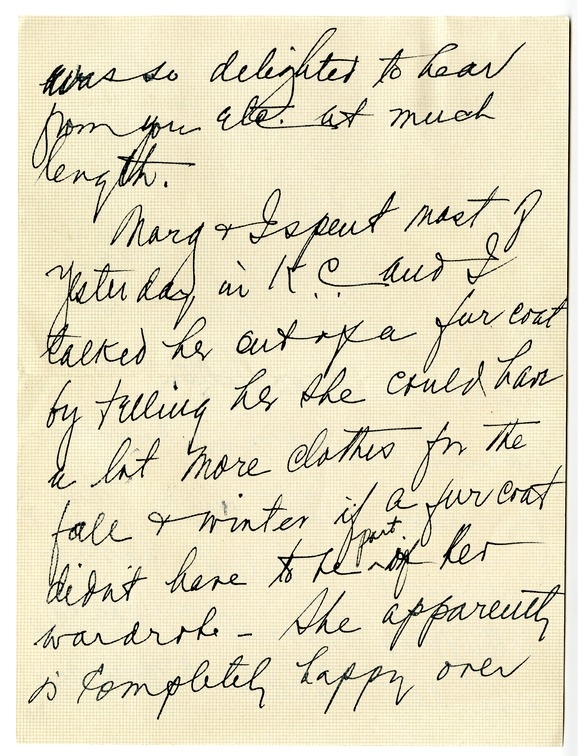 was so delighted to hear
from you etc. at much
length.
Marg & I spent most of
yesterday in K.C. and I
talked her out of a fur coat
by telling her she could have
a lot more clothes for the
fall & winter if a fur coat
didn't have to be part of her
wardrobe - She apparently
is completely happy over